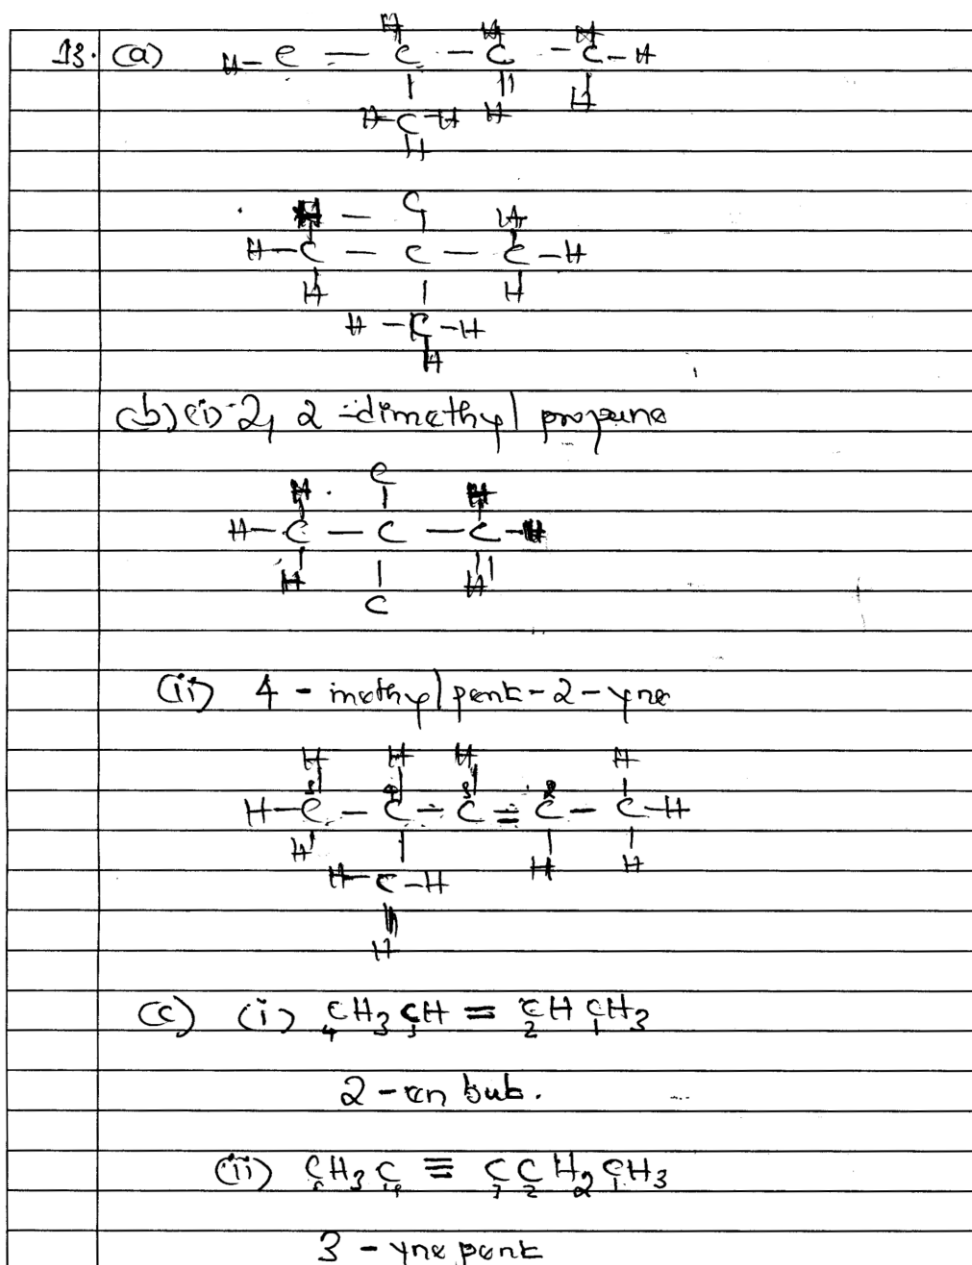 H
H
H
13. (a) H - C — C - C - C - H
| || |
H - C - H H H
H
H — C H
H - C — C — C - H
H | H
H - C - H
H
(b) (i) 2, 2 - dimethyl propane
H C H
H - C — C — C - H
H | H
C
(ii) 4 - methyl pent - 2 - yne
H H H H
H - C - C - C = C - C - H
5 4 3 2
H | H H
H - C - H
H
(c) (i) CH3 CH = CH CH3
4 3 2 1
2 - en but.
(ii) CH3 C ≡ C C H2 CH3
5 4 3 2 1
3 - yne pent